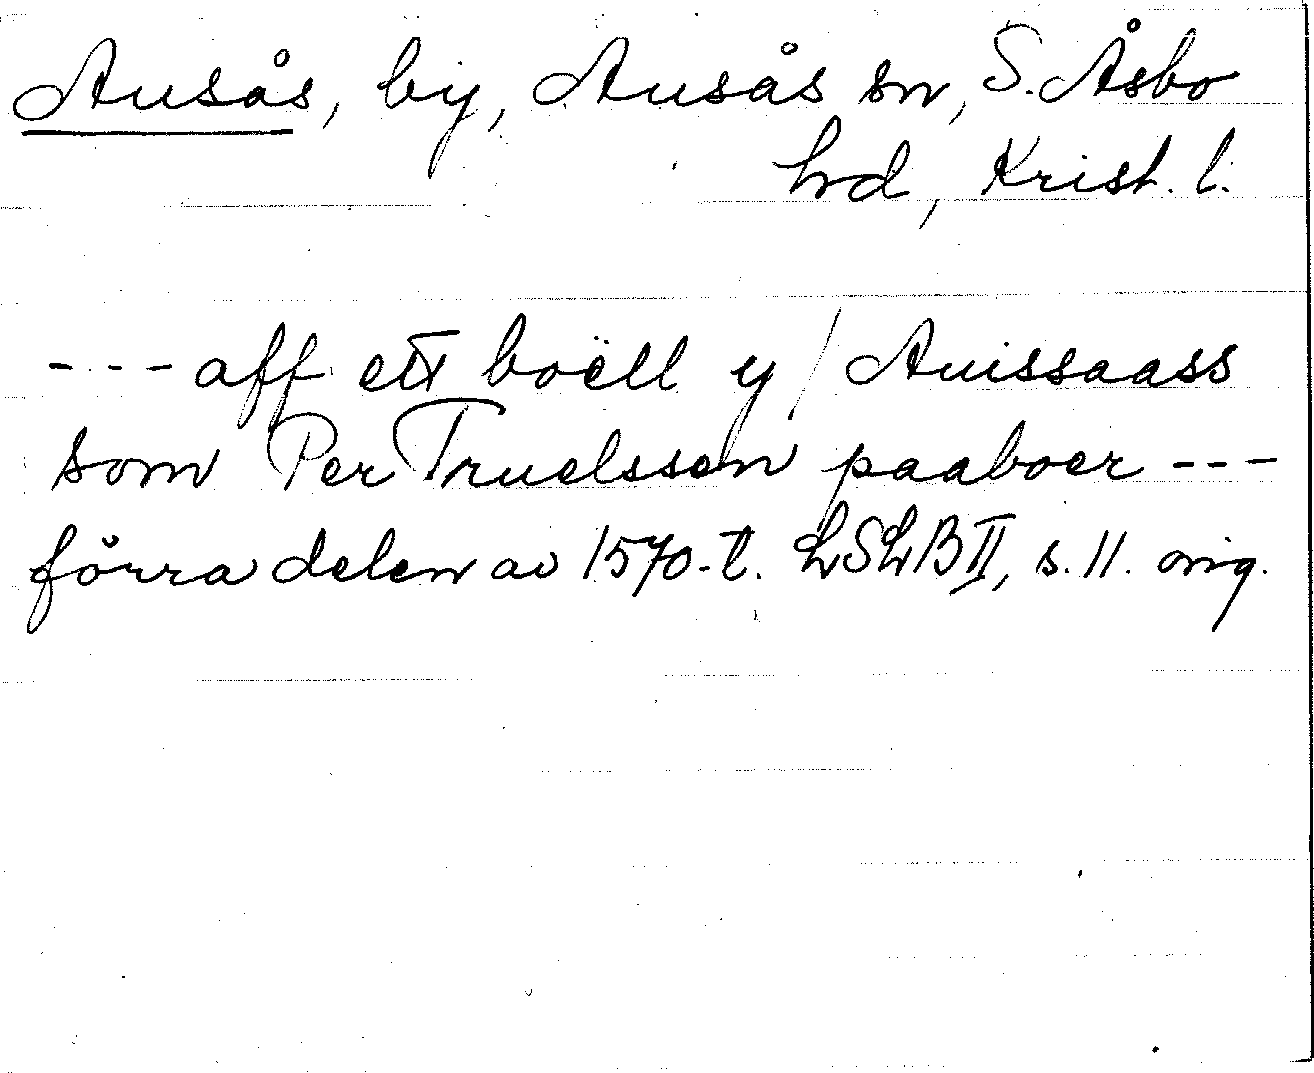 Ausås, by, Ausås sn, S. Åsbo
hd, Krist. l.
--- aff ett boëll y / Auissaass
som Per Truelssen paaboer ---
förra delen av 1570-t. LSLB II, s. 11. orig.